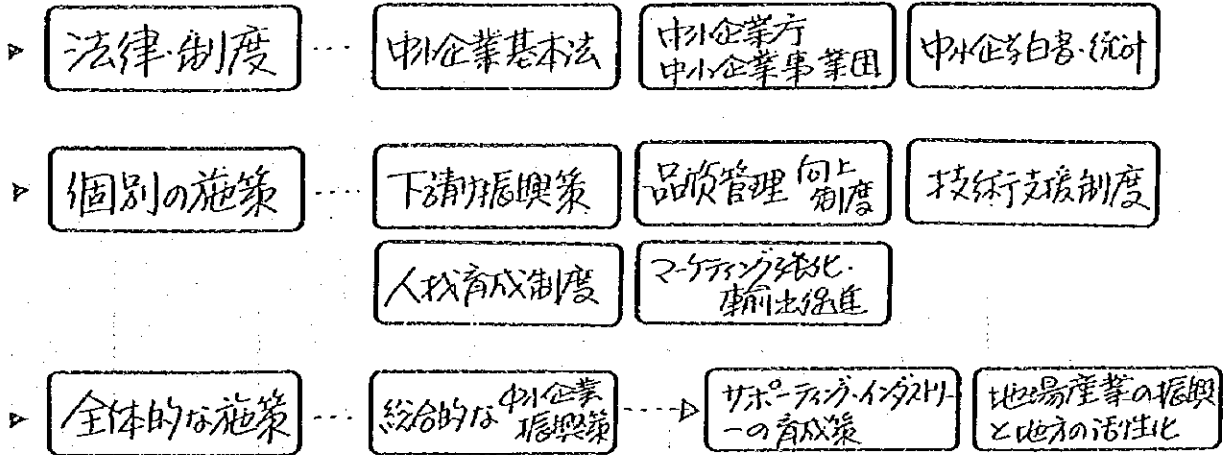 ▷ 法律・制度 ‥‥ 中小企業基本法 中小企業庁 中小企業白書・統計
中小企業事業団
▷ 個別の施策 ‥‥ 下請け振興策 品質管理 向上制度 技術支援制度
人材育成制度 マーケティング強化・
輸出促進
▷ 全体的な施策 ‥‥ 総合的な中小企業振興策 ‥‥▷ サポーティング・インダストリー 地場産業の振興
ーの育成策 と地方の活性化